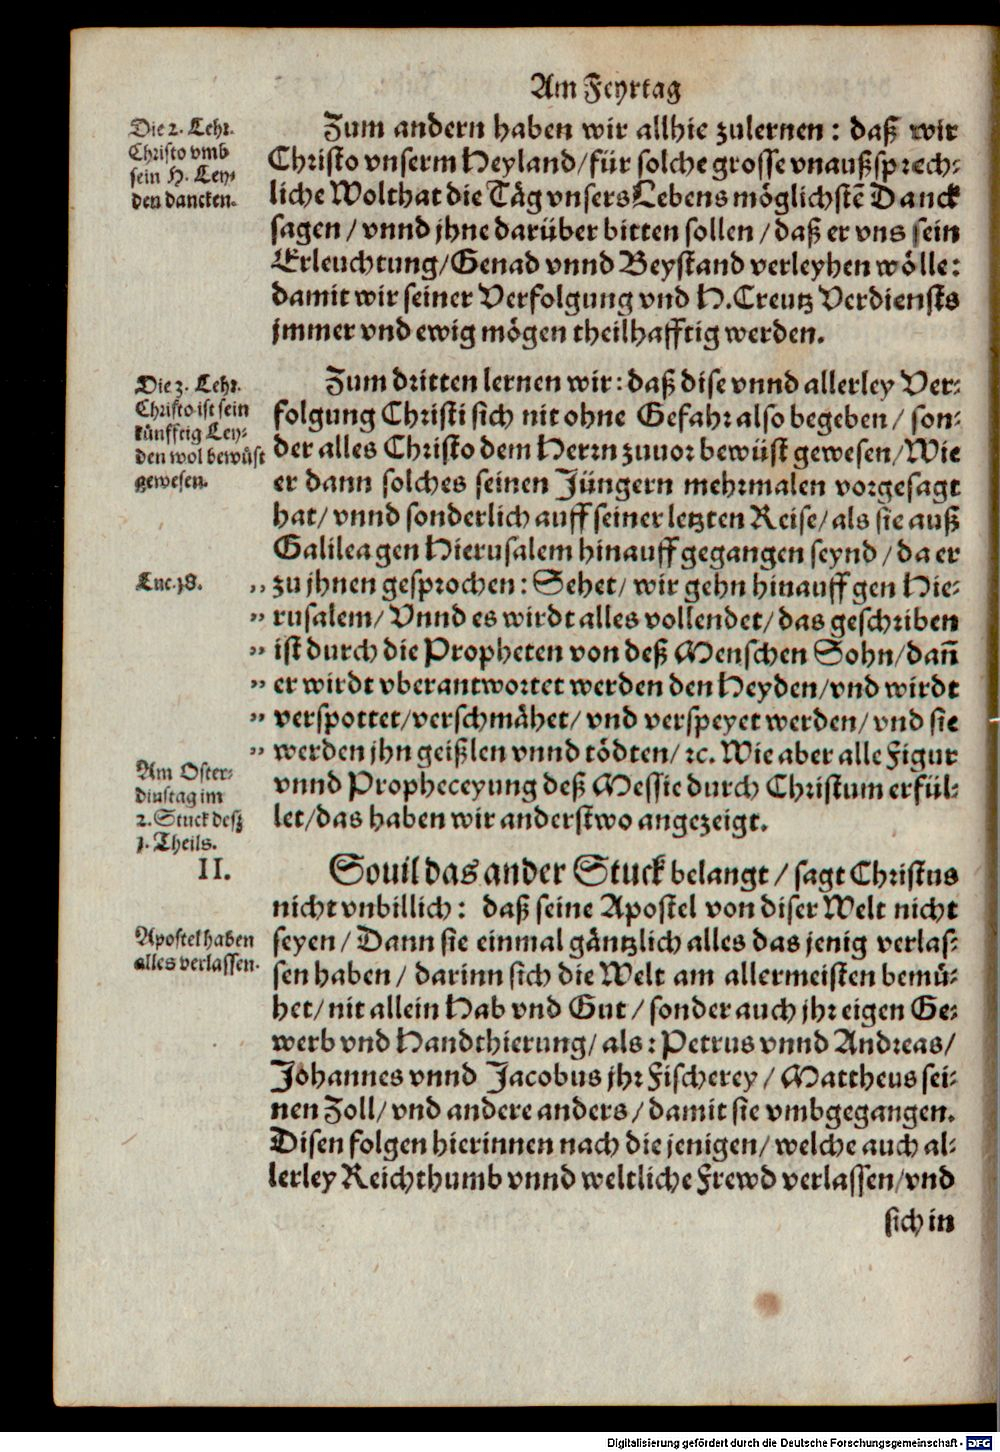 Am Feyrtag
Die 2. Lehr.
Christo vmb
sein H. Ley-
den dancken.
Zum andern haben wir allhie zulernen: daß wir
Christo vnserm Heyland/für solche grosse vnaußsprech-
liche Wolthat die Täg vnsers Lebens möglichstē Danck
sagen/vnnd jhne darüber bitten sollen/daß er vns sein
Erleuchtung/Genad vnnd Beystand verleyhen wölle:
damit wir seiner Verfolgung vnd H. Creutz Verdiensts
jmmer vnd ewig mögen theilhafftig werden.
Die 3. Lehr.
Christo ist sein
künfftig Ley-
den wol bewüst
gewesen.
Zum dritten lernen wir: daß dise vnnd allerley Ver-
folgung Christi sich nit ohne Gefahr also begeben/son-
der alles Christo dem Herrn zuuor bewüst gewesen/Wie
er dann solches seinen Jüngern mehrmalen vorgesagt
hat/vnnd sonderlich auff seiner letzten Reise/als sie auß
Galilea gen Hierusalem hinauff gegangen seynd/da er
Luc. 18.
„ zu jhnen gesprochen: Sehet/wir gehn hinauff gen Hie-
„ rusalem/Vnnd es wirdt alles vollendet/das geschriben
„ ist durch die Propheten von deß Menschen Sohn/dañ
„ er wirdt vberantwortet werden den Heyden/vnd wirdt
„ verspottet/verschmähet/vnd verspeyet werden/vnd sie
„ werden jhn geißlen vnnd tödten/ꝛc. Wie aber alle Figur
vnnd Propheceyung deß Messie durch Christum erfül-
let/das haben wir anderstwo angezeigt.
Am Oster-
dinstag im
2. Stuck desz
1. Theils.
II.
Souil das ander Stuck belangt/sagt Christus
nicht vnbillich: daß seine Apostel von diser Welt nicht
seyen/Dann sie einmal gäntzlich alles das jenig verlas-
sen haben/darinn sich die Welt am allermeisten bemü-
het/nit allein Hab vnd Gut/sonder auch jhr eigen Ge-
werb vnd Handthierung/als: Petrus vnnd Andreas/
Johannes vnnd Jacobus jhr Fischerey/Mattheus sei-
nen Zoll/vnd andere anders/damit sie vmbgegangen.
Disen folgen hierinnen nach die jenigen/welche auch al-
lerley Reichthumb vnnd weltliche Frewd verlassen/vnd
Apostel haben
alles verlassen.
sich in
Digitalisierung gefördert durch die Deutsche Forschungsgemeinschaft - DFG